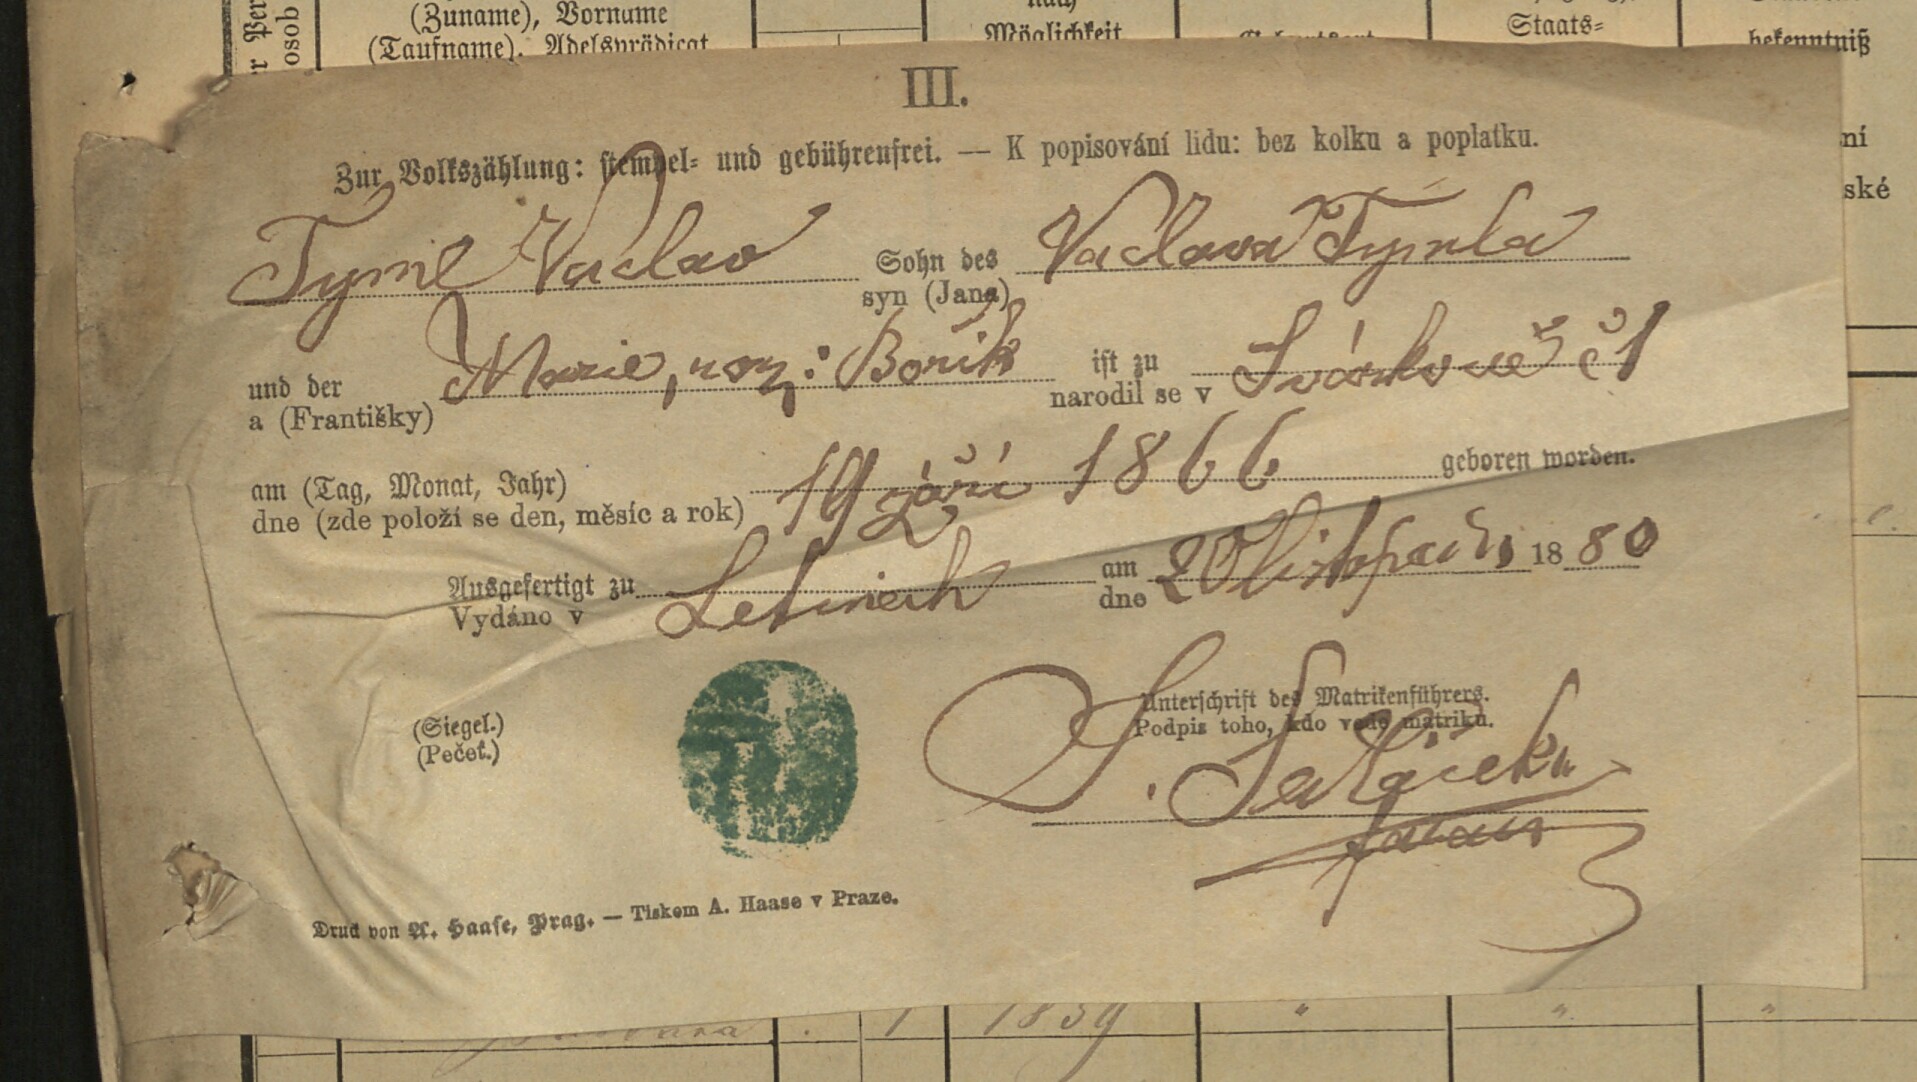 (Zuname), Vorname
(Taufname), Adelsprädicat
nach
Möglichkeit
Geburtsort
Staats=
bekenntniß
osob
III.
Zur Volkszählung: stempel= und gebührenfrei. — K popisování lidu: bez kolku a poplatku.
ní
ské
Týml Václav Sohn des Václava Týmla
syn (Jana)
und der Marie, roz: Bořík ist zu
a (Františky) narodil se v č 1
am (Tag, Monat, Jahr) 19 září 1866 geboren worden.
dne (zde položí se den, měsíc a rok)
Ausgefertigt zu Letinech am 20 listopadu 1880
Vydáno v dne
(Siegel.)
(Pečeť.)
Unterschrift des Matrikenführers.
Podpis toho, kdo vede matriku.
farář
Druck von A. Haase, Prag. — Tiskem A. Haase v Praze.
1 1859 " " "